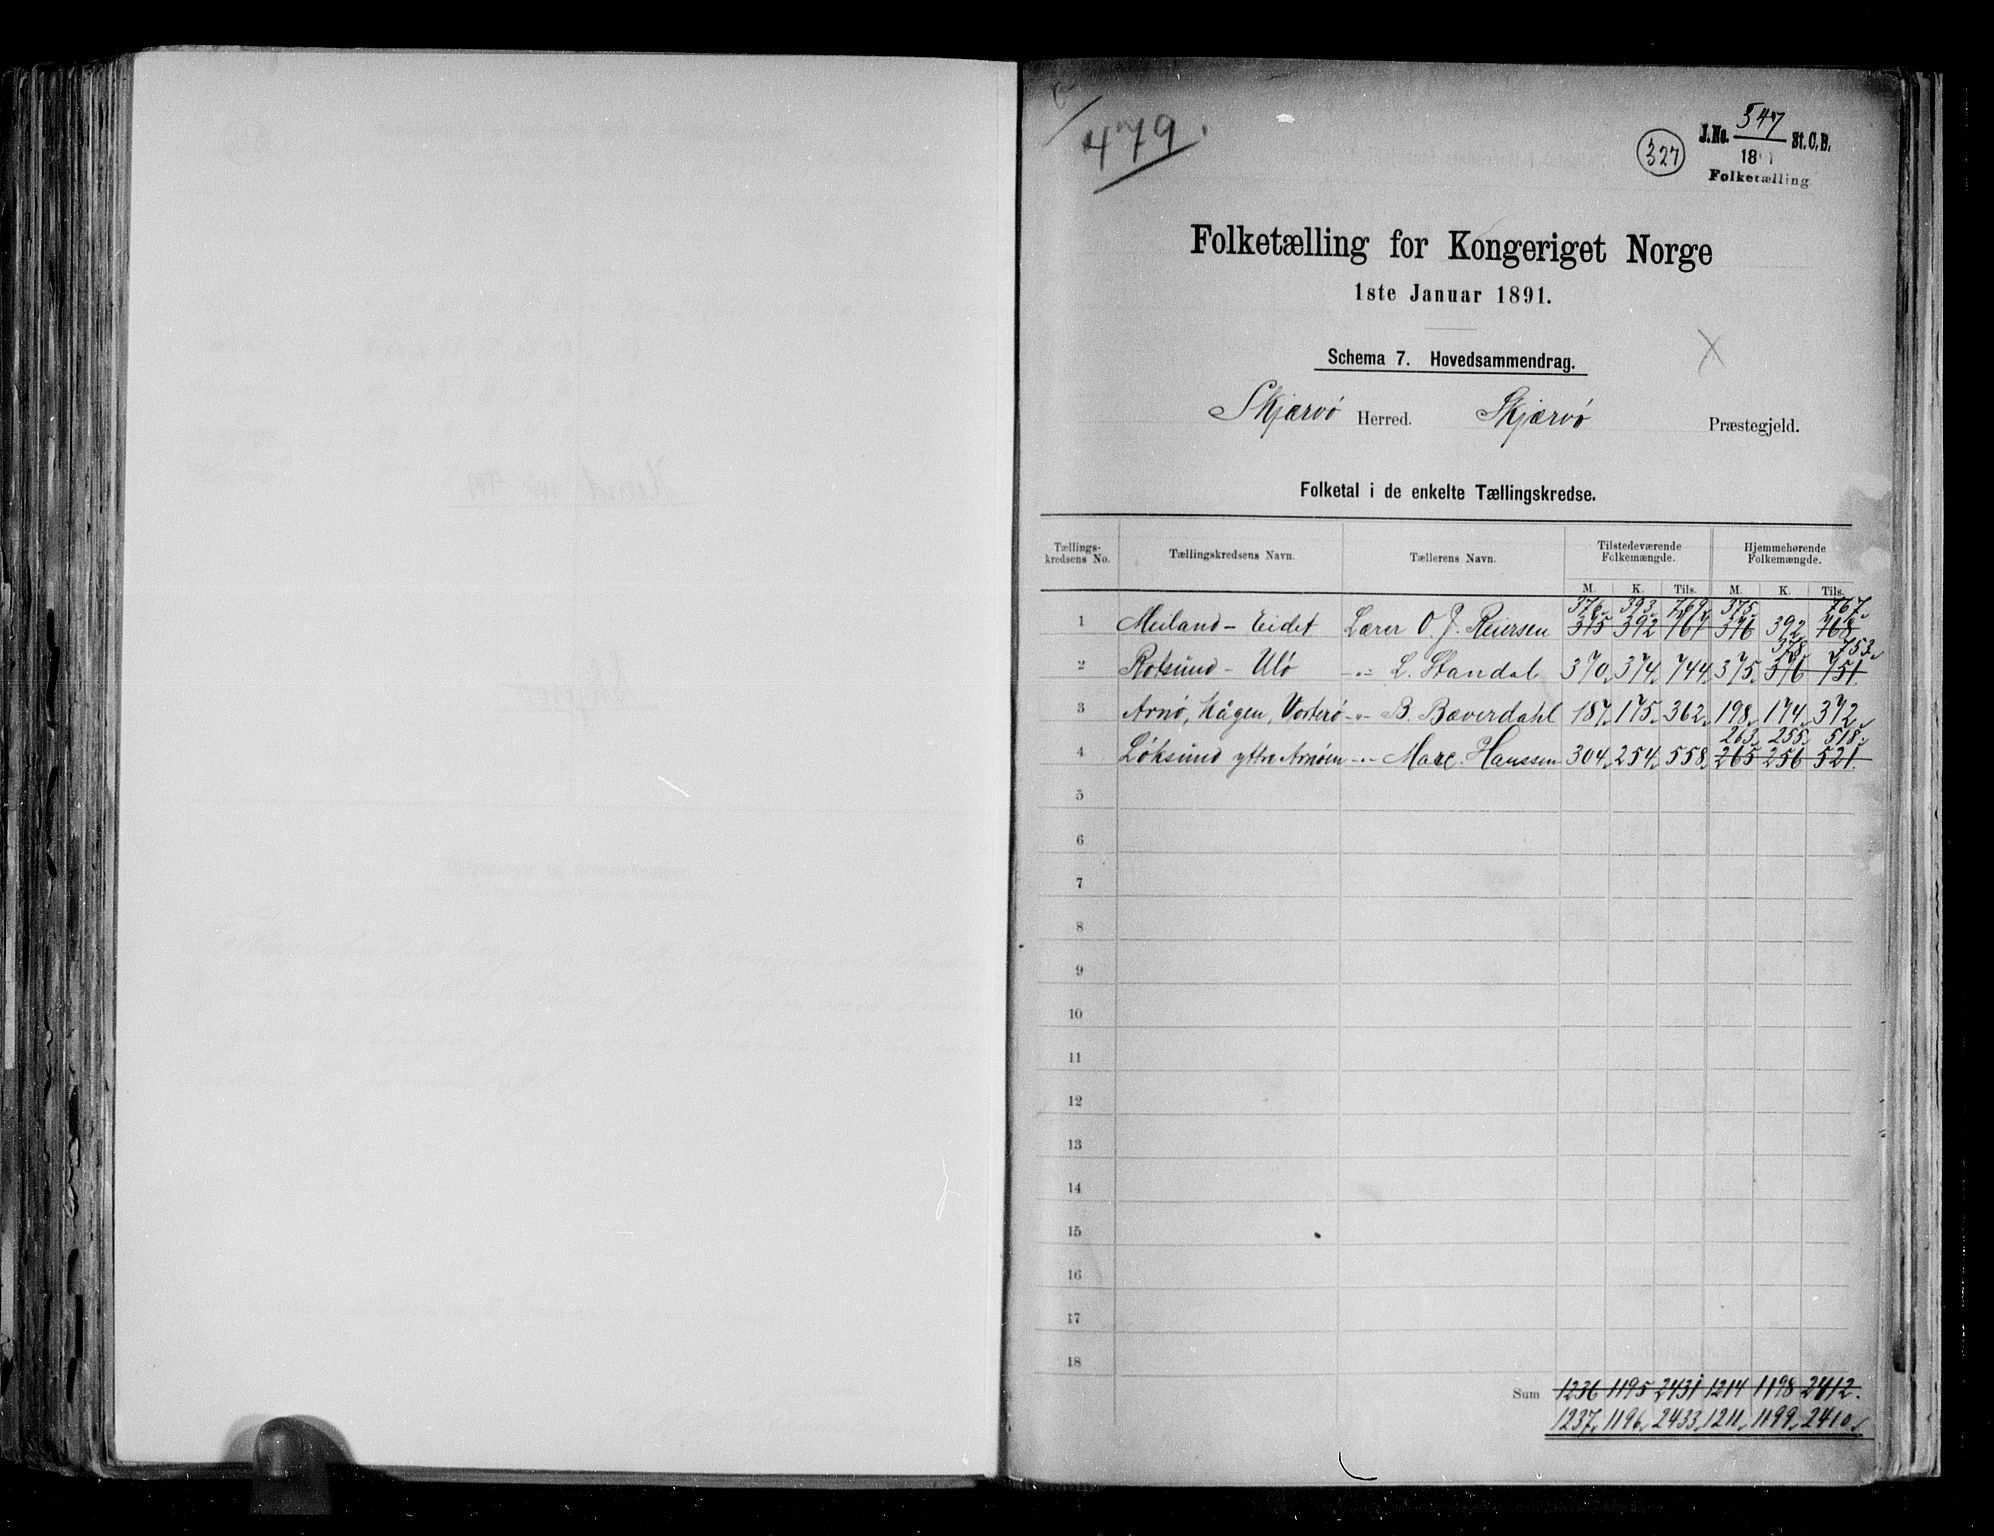 479.
327
J.No. 547 St.C.B.
18
Folketælling
Folketælling for Kongeriget Norge
1ste Januar 1891.
Schema 7. Hovedsammendrag.
Skjærvø Herred. Skjærvø Præstegjeld.
Folketal i de enkelte Tællingskredse.
Tællings-kredsens No. Tællingskredsens Navn. Tællerens Navn. Tilstedeværende Folkemængde. Hjemmehørende Folkemængde.
M. K. Tils. M. K. Tils.
376 393 769 375 767
1 Meiland - Eidet Lærer O. J. Reiersen 375 392 767 376 392 768
378 753
2 Rotsund - Ulø -"- L. Standal 370 374 744 375 376 751
3 Arnø, Kågen, Vorterø -"- B. Bæverdahl 187 175 362 198 174 372
263 255 518
4 Løksund ytre Arnøen -"- Hanssen 304 254 558 265 256 521
5
6
7
8
9
10
11
12
13
14
15
16
17
18
Sum 1236 1195 2431 1214 1198 2412.
1237 1196 2433 1211 1199 2410